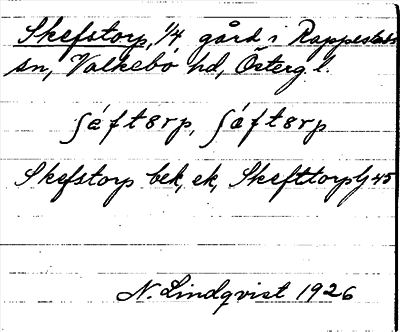 Skefstorp, 1/4 gård i Rappestads
sn, Valkebo hd, Österg. l.
ʃéftɘrp, ʃáftɘrp
Skefstorp bek, ek, Skefttorp Gj 45
N. Lindqvist 1926